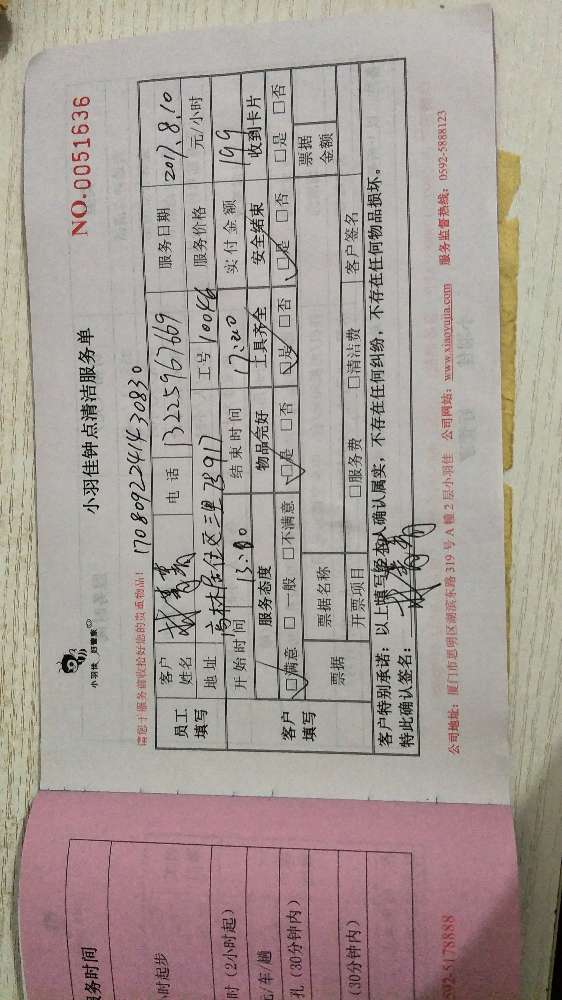 小羽佳 好管家
小羽佳钟点清洁服务单
NO.0051636
请您于服务前收拾好您的贵重物品！
170809224143083​0
员工填写
客户姓名
电话 13225967669
服务日期 2017.8.10
地址 高林居住区三里
工号 10046
服务价格 元/小时
开始时间
结束时间 17:20
实付金额 199
客户填写
服务态度 物品完好 工具齐全 安全结束 收到卡片
☑满意 □一般 □不满意 ☑是 □否 ☑是 □否 ☑是 □否 □是 □否
票据 票据名称 票据金额
开票项目 □服务费 □清洁费 客户签名
客户特别承诺：以上填写经本人确认属实，不存在任何纠纷，不存在任何物品损坏。
特此确认签名：
公司地址：厦门市思明区湖滨东路319号A幢2层小羽佳 公司网站：www.xiaoyujia.com 服务监督热线：0592-5888123
服务时间
时起步
时（2小时起）
元/车/趟
孔（30分钟内）
（30分钟内）
92-5178888